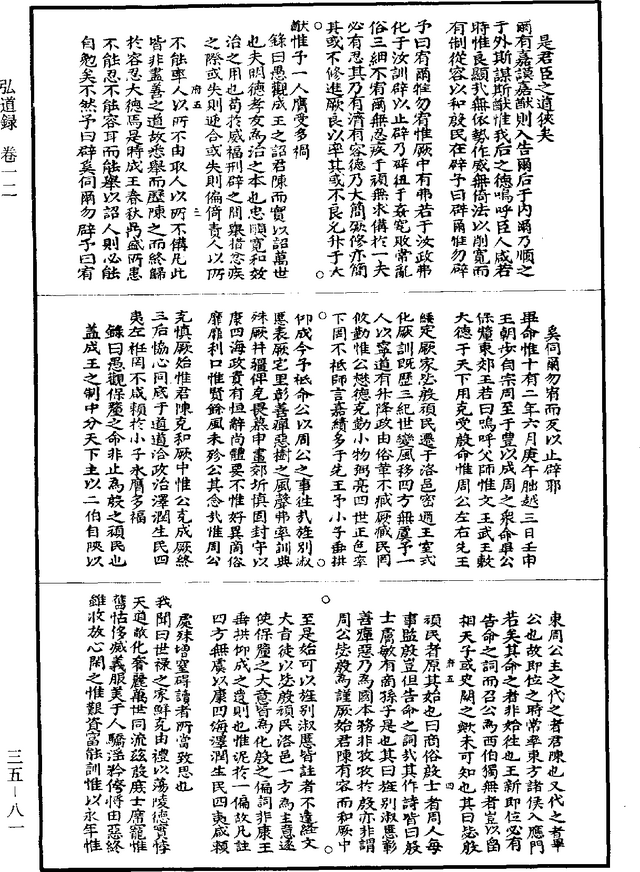 弘道録 卷一二
三五-八一
是君臣之道狹矣
爾有嘉謨嘉猷則入告爾后于内爾乃順之
于外斯謀斯猷惟我后之德嗚呼臣人咸若
時惟良顯哉無依勢作威無倚法以削寬而
有制從容以和殷民在辟予曰辟爾惟勿辟
予曰宥爾惟勿宥惟厥中有弗若于汝政弗
化于汝訓辟以止辟乃辟狃于姦宄敗常亂
俗三細不宥爾無忿疾于頑無求備於一夫
必有忍其乃有濟有容德乃大簡厥修亦簡
其或不修進厥良以率其或不良允升于大
猷惟予一人膺受多福
錄曰愚觀成王之詔君陳而實以詔萬世
也夫明德孝友為治之本也忠順寬和效
治之用也苟於威福刑辟之間舉措忿疾
之際或失則迎合或失則偏倚責人以所
府五 三
不能率人以所不由取人以所不備凡此
皆非盡善之道故悉舉而歷陳之而終歸
於容忍大德焉是時成王春秋鼎盛所患
不能忍不能容耳而能舉以詔人則必能
自勉矣不然予曰辟奚伺爾勿辟予曰宥
奚伺爾勿宥而奚以止辟耶
畢命惟十有二年六月庚午朏越三日壬申
王朝步自宗周至于豐以成周之衆命畢公
保釐東郊王若曰嗚呼父師惟文王武王敷
大德于天下用克受殷命惟周公左右先王
綏定厥家毖殷頑民遷于洛邑密邇王室式
化厥訓既歷三紀世變風移四方無虞予一
人以寧道有升降政由俗革不臧厥臧民罔
攸勸惟公懋德克勤小物弼亮四世正色率
下罔不祗師言嘉績多于先王予小子垂拱
仰成今予祗命公以周公之事往哉旌别淑
慝表厥宅里彰善癉惡樹之風聲弗率訓典
殊厥井疆俾克畏慕申畫郊圻慎固封守以
康四海政貴有恒辭尚體要不惟好異商俗
靡靡利口惟賢餘風未殄公其念哉惟周公
克慎厥始惟君陳克和厥中惟公克成厥終
三后協心同底于道道洽政治澤潤生民四
夷左衽罔不咸賴於小子永膺多福
錄曰愚觀保釐之命非止為殷之頑民也
蓋成王之制中分天下主以二伯自陝以
東周公主之代之者君陳也又代之者畢
公也故即位之時常率東方諸侯入應門
若矣其命之者非始往也王新即位必有
告命之詞而召公為西伯獨無者豈以留
相天子或史闕之歟未可知也其曰毖殷
府五 四
頑民者原其始也曰商俗殷士者周人每
事監殷豈但告命之詞哉其作詩皆曰殷
士膚敏有商孫子是也其曰旌别淑慝彰
善癉惡乃為國本務非孜孜於殷亦非謂
周公毖殷為謹厥始君陳有容而和厥中
至是始可以旌别淑慝皆註者不達經文
大旨徒以毖殷頑民洛邑一方為主意遂
使保釐之大意皆為化殷之偏詞非康王
垂拱仰成之遺則也惟泥於一偏故凡註
四方無虞以康四海澤潤生民四夷咸賴
處殊增窒碍讀者所當致思也
我聞曰世禄之家鮮克由禮以蕩陵德實悖
天道敝化奢麗萬世同流兹殷庶士席寵惟
舊怙侈滅義服美于人驕淫矜侉將由惡終
雖收放心閑之惟艱資富能訓惟以永年惟